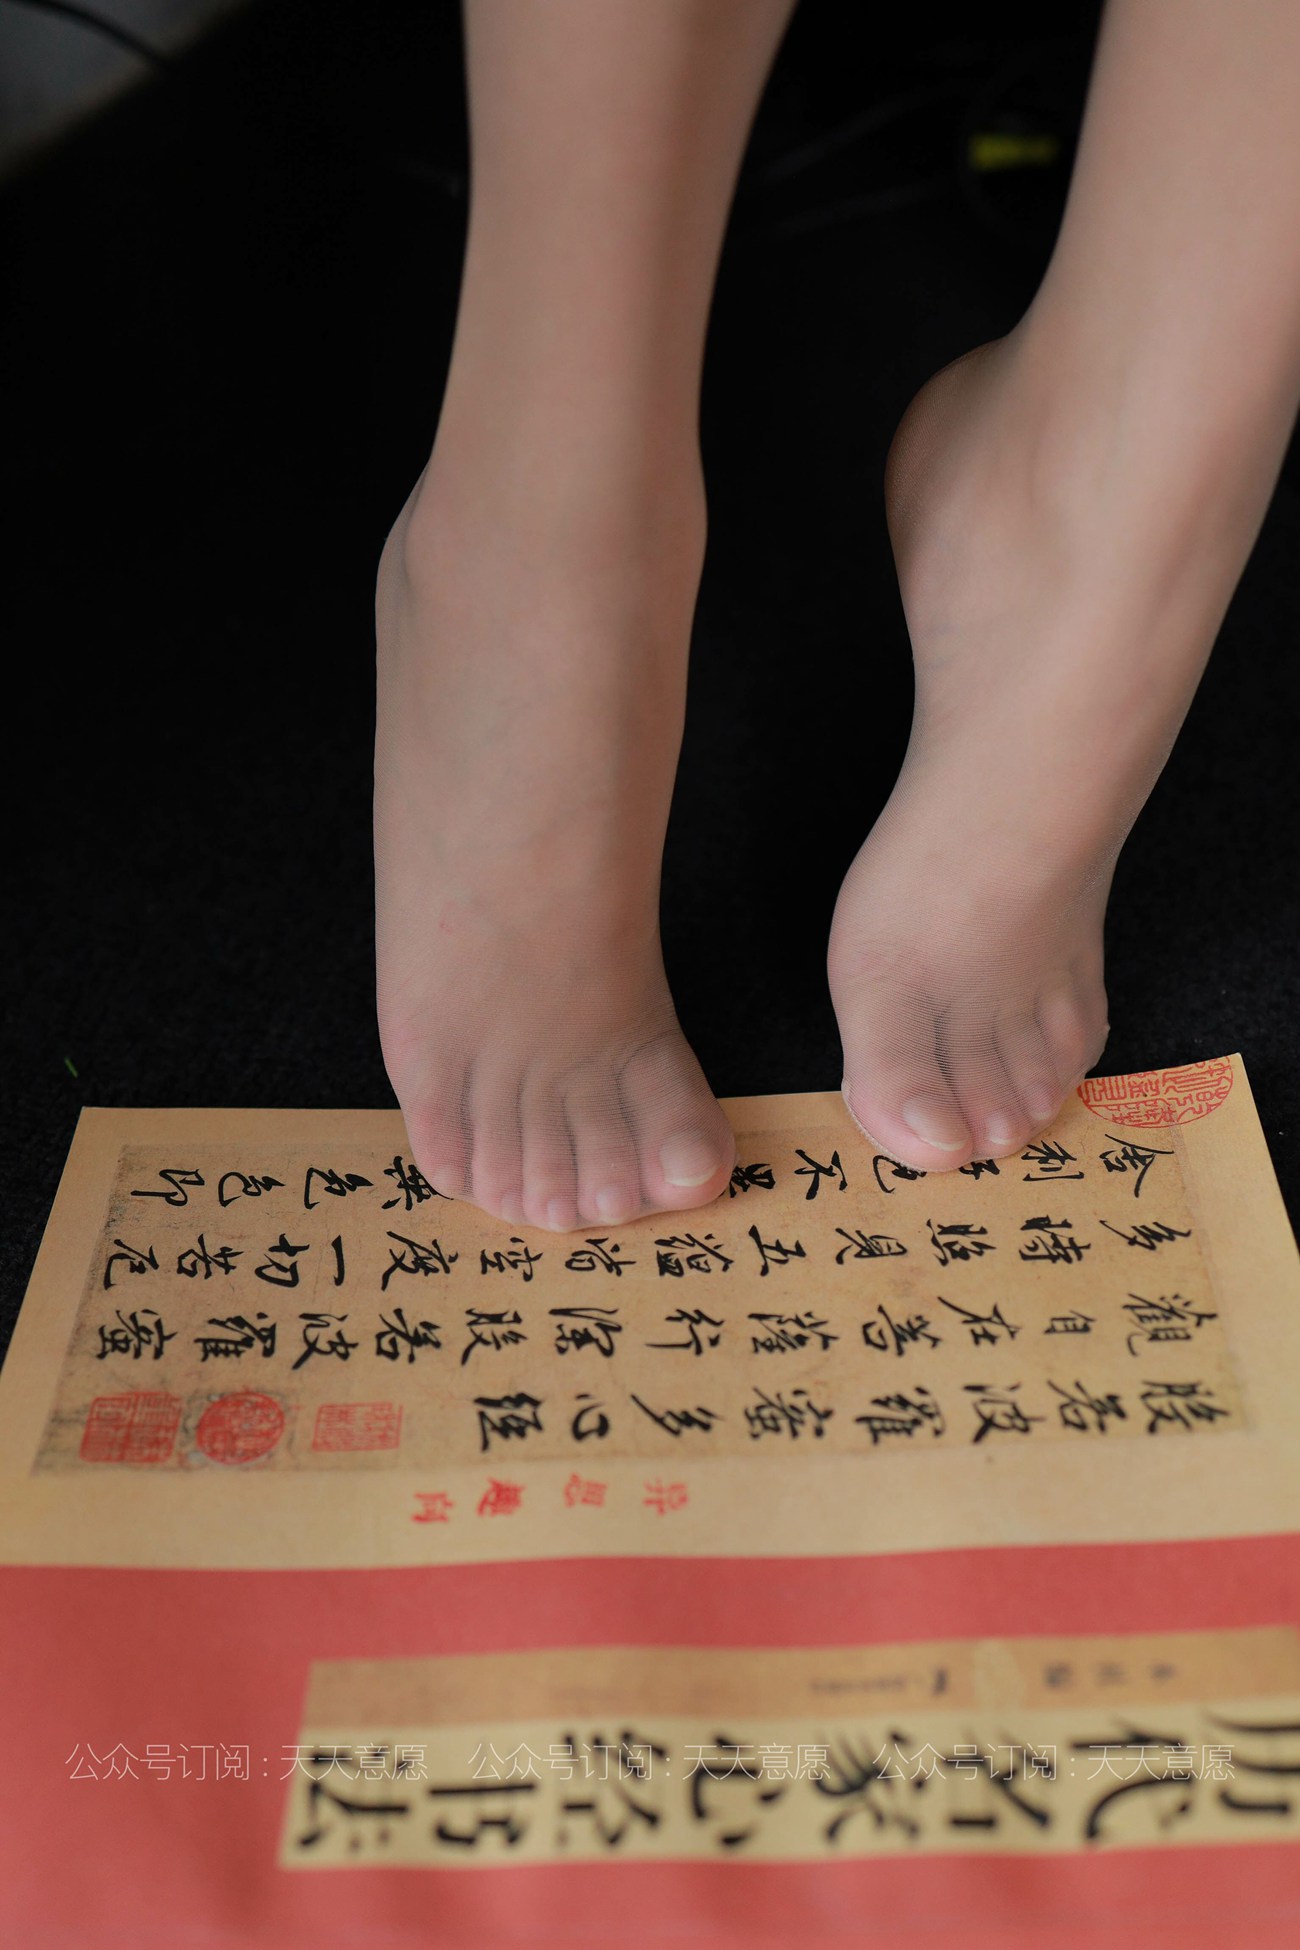 舍利子色不異 異色色即
多時照見五蘊皆空度一切苦厄
觀自在菩薩行深般若波羅蜜
般若波羅蜜多心經
异思趣向
历代名家心经书法
公众号订阅 : 天天意愿 公众号订阅 : 天天意愿 公众号订阅 : 天天意愿